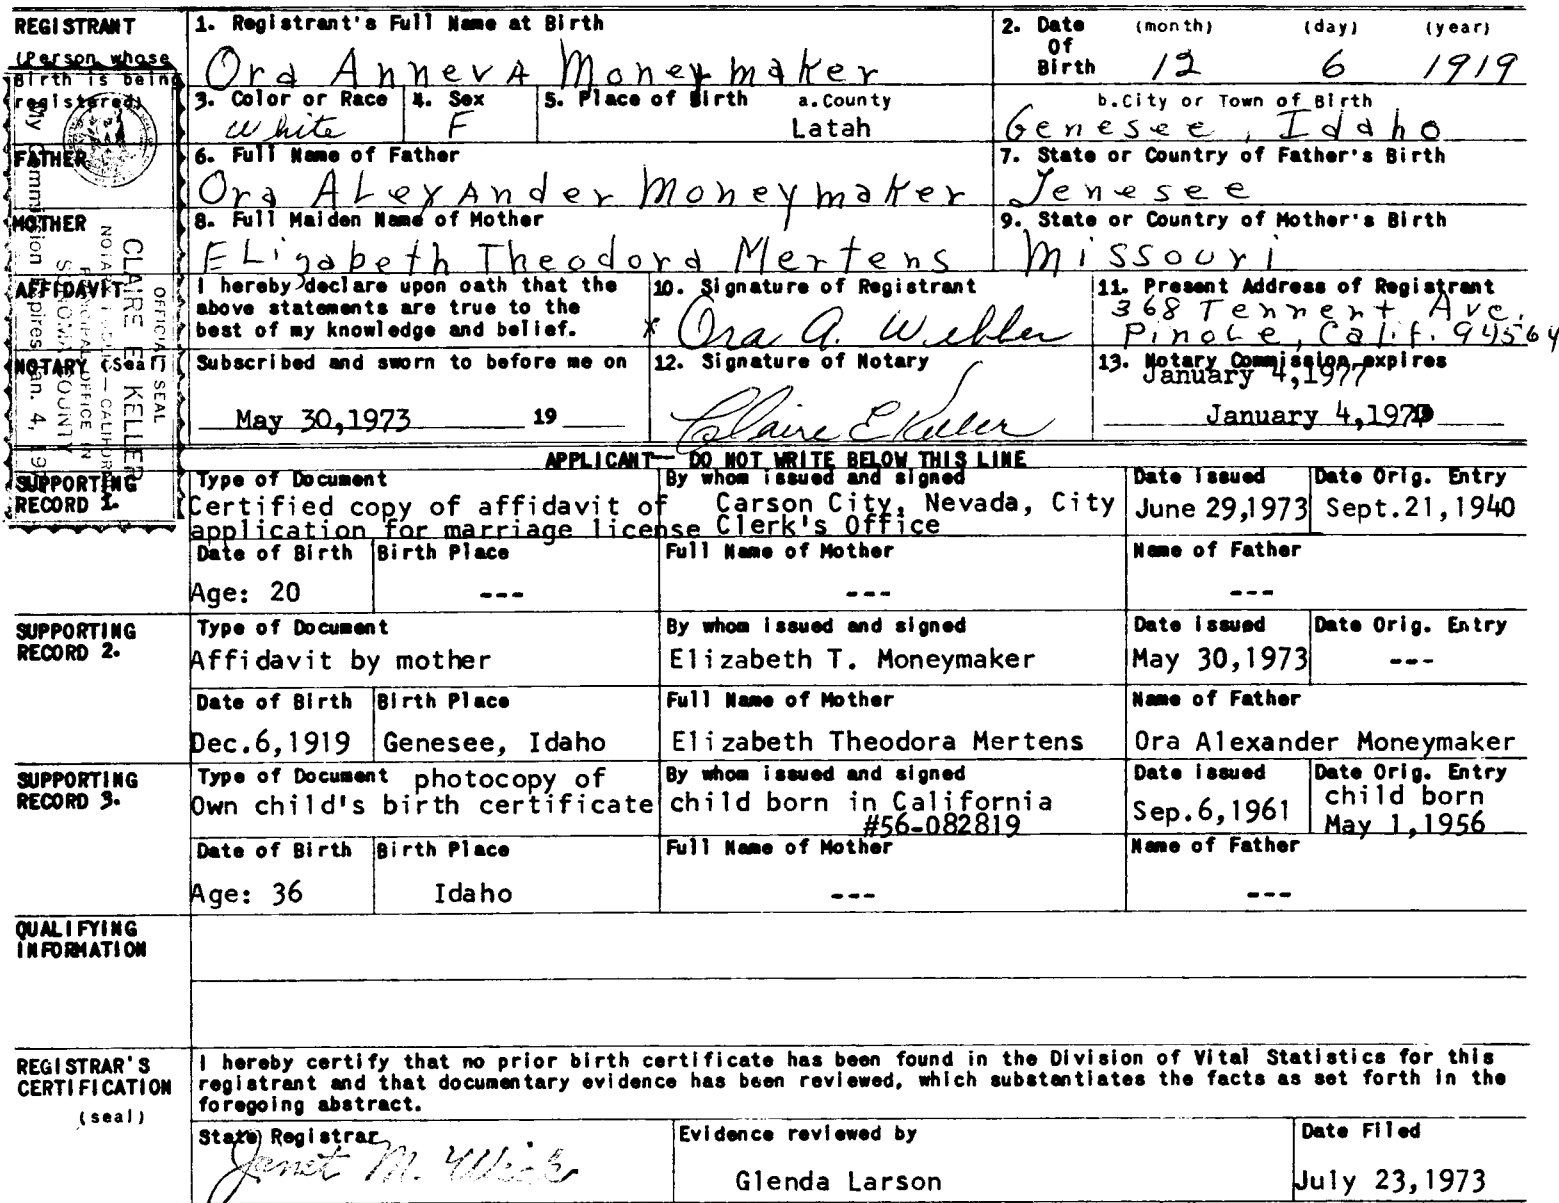 REGISTRANT
(Person whose
Birth is being
registered)
1. Registrant's Full Name at Birth
Ora Anneva Moneymaker
2. Date Of Birth (month) (day) (year)
12 6 1919
3. Color or Race
White
4. Sex
F
5. Place of Birth a. County
Latah
b. City or Town of Birth
Genesee, Idaho
FATHER
6. Full Name of Father
Ora Alexander Moneymaker
7. State or Country of Father's Birth
Tenesee
MOTHER
8. Full Maiden Name of Mother
Elizabeth Theodora Mertens
9. State or Country of Mother's Birth
Missouri
AFFIDAVIT
I hereby declare upon oath that the
above statements are true to the
best of my knowledge and belief.
10. Signature of Registrant
x Ora A. Webber
11. Present Address of Registrant
368 Tennent Ave.
Pinole, Calif. 94564
NOTARY (Seal)
Subscribed and sworn to before me on
May 30,1973 19
12. Signature of Notary
Claire E Keller
13. Notary Commission expires
January 4,1977
January 4,197
OFFICIAL SEAL
CLAIRE E KELLER
NOTARY PUBLIC - CALIFORNIA
PRINCIPAL OFFICE IN
SONOMA COUNTY
My Commission Expires Jan. 4, 19
APPLICANT— DO NOT WRITE BELOW THIS LINE
SUPPORTING
RECORD 1.
Type of Document
Certified copy of affidavit of
application for marriage license
By whom issued and signed
Carson City, Nevada, City
Clerk's Office
Date issued
June 29,1973
Date Orig. Entry
Sept.21,1940
Date of Birth
Age: 20
Birth Place
---
Full Name of Mother
---
Name of Father
---
SUPPORTING
RECORD 2.
Type of Document
Affidavit by mother
By whom issued and signed
Elizabeth T. Moneymaker
Date issued
May 30,1973
Date Orig. Entry
---
Date of Birth
Dec.6,1919
Birth Place
Genesee, Idaho
Full Name of Mother
Elizabeth Theodora Mertens
Name of Father
Ora Alexander Moneymaker
SUPPORTING
RECORD 3.
Type of Document photocopy of
Own child's birth certificate
By whom issued and signed
child born in California
#56-082819
Date issued
Sep.6,1961
Date Orig. Entry
child born
May 1,1956
Date of Birth
Age: 36
Birth Place
Idaho
Full Name of Mother
---
Name of Father
---
QUALIFYING
INFORMATION
REGISTRAR'S
CERTIFICATION
(seal)
I hereby certify that no prior birth certificate has been found in the Division of Vital Statistics for this
registrant and that documentary evidence has been reviewed, which substantiates the facts as set forth in the
foregoing abstract.
State Registrar
Janet M. Wick
Evidence reviewed by
Glenda Larson
Date Filed
July 23,1973